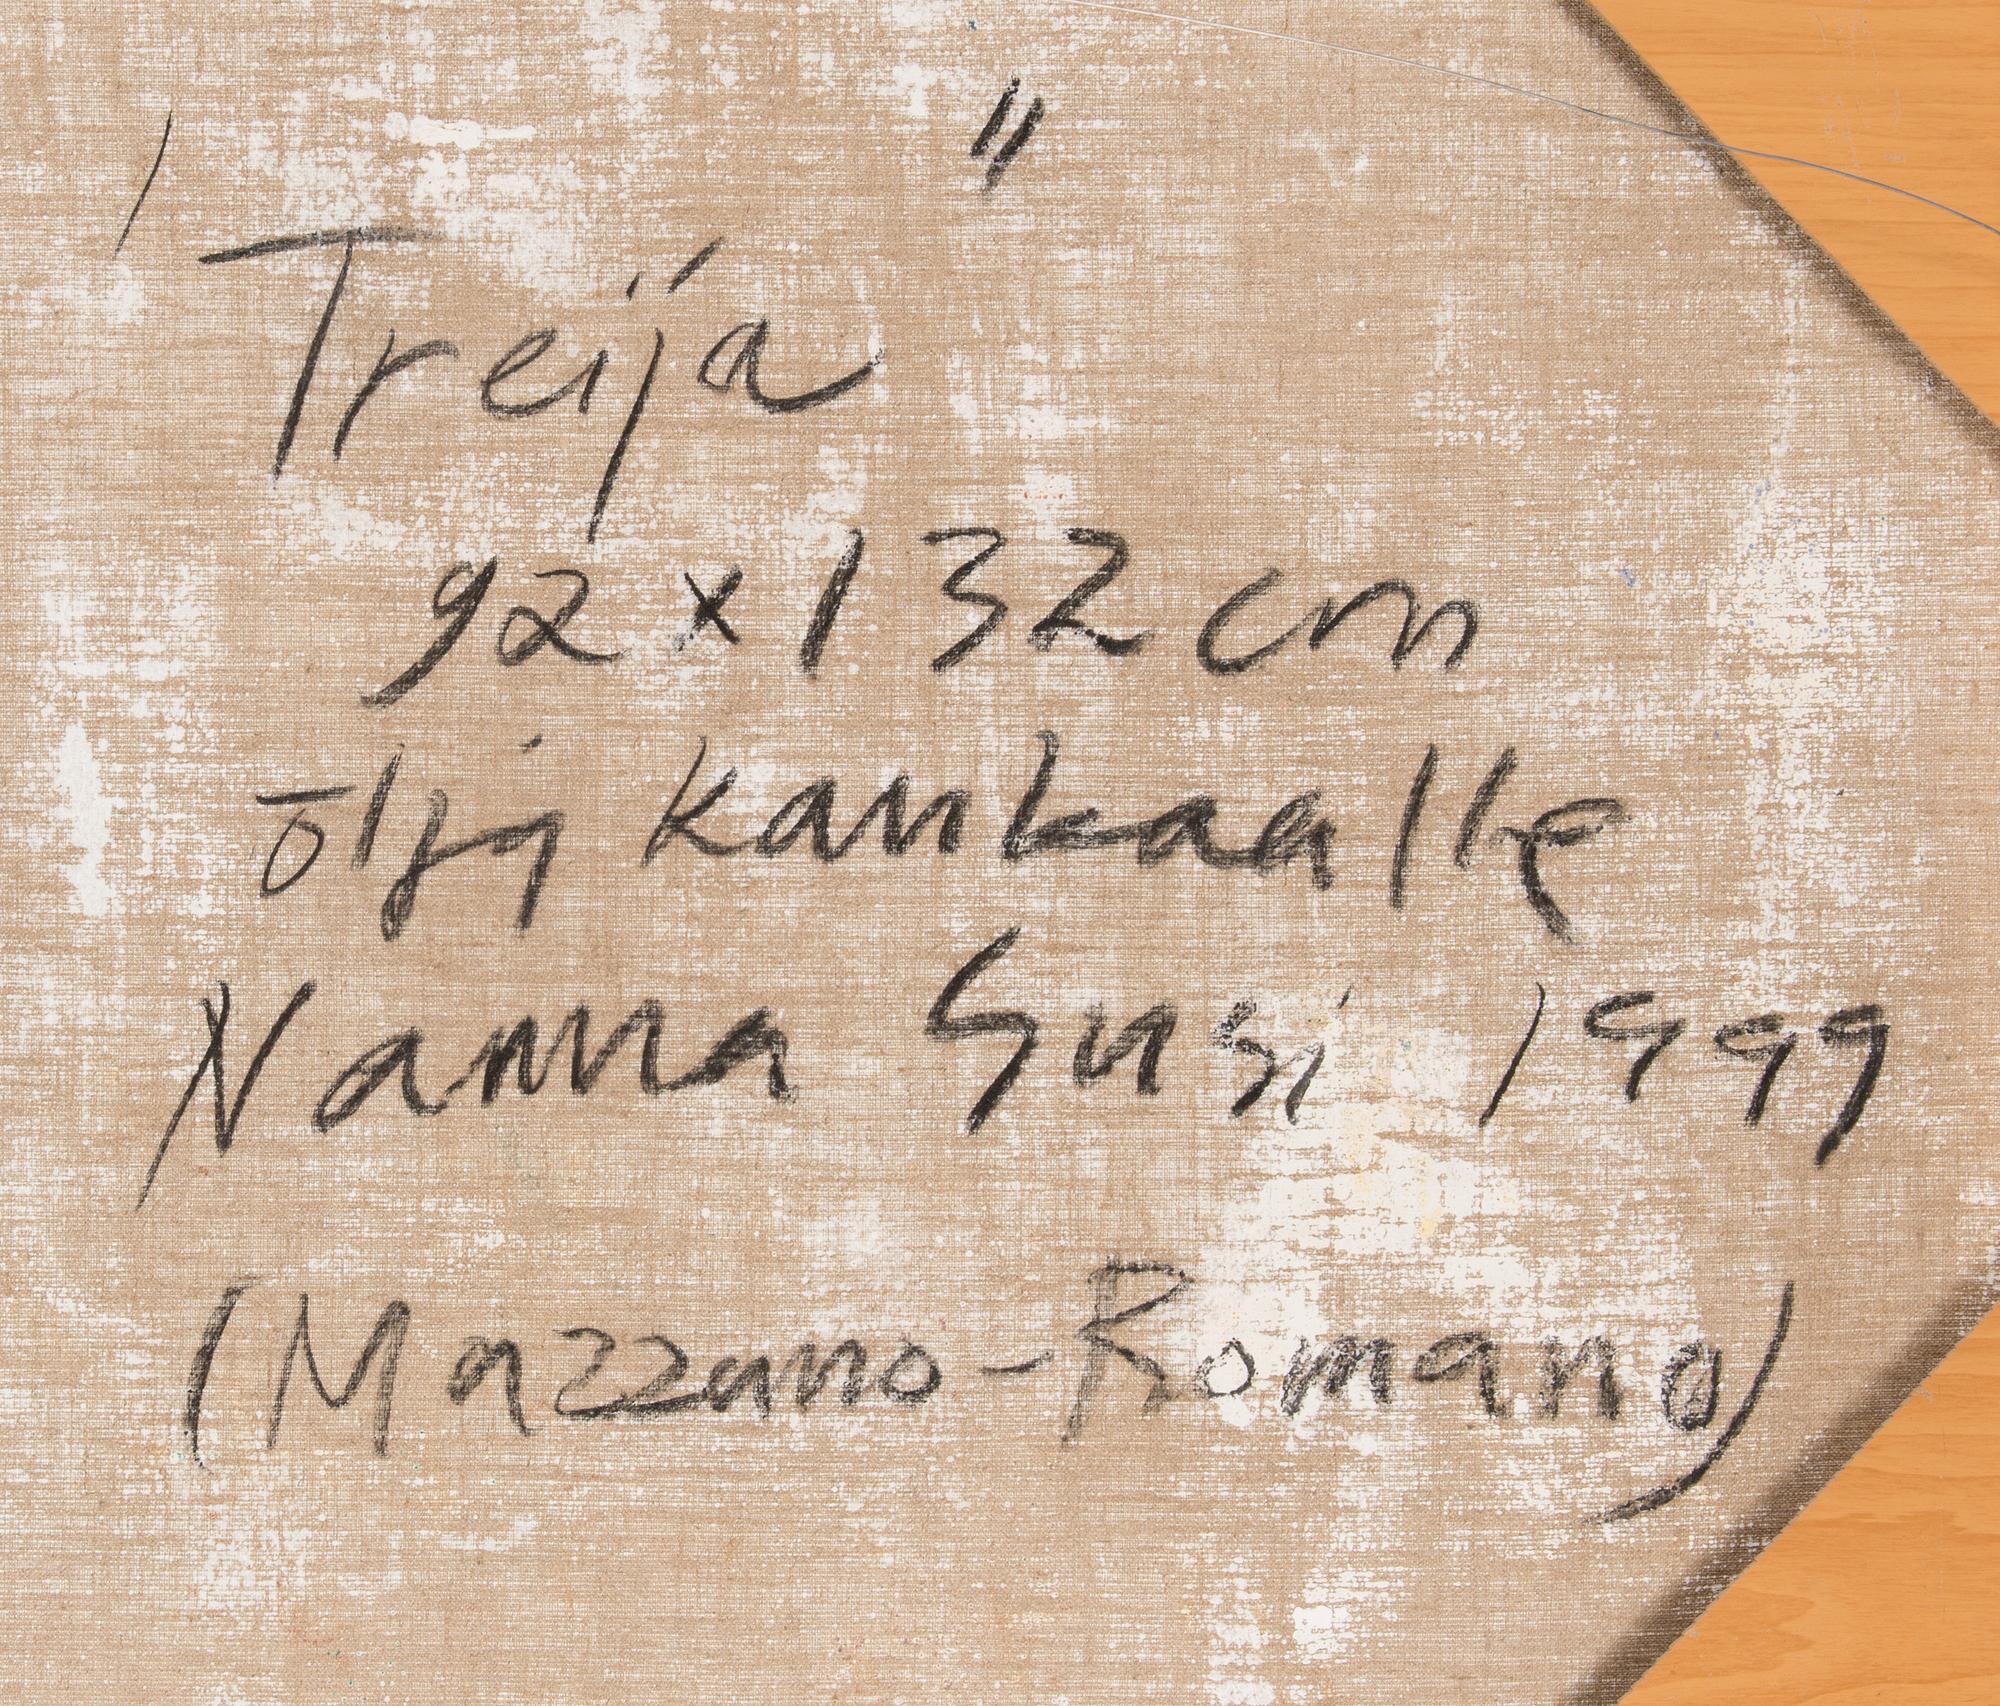 "Treija"
92x132cm
öljy kankaalle
Nanna Susi 1999
(Mazzano-Romano)